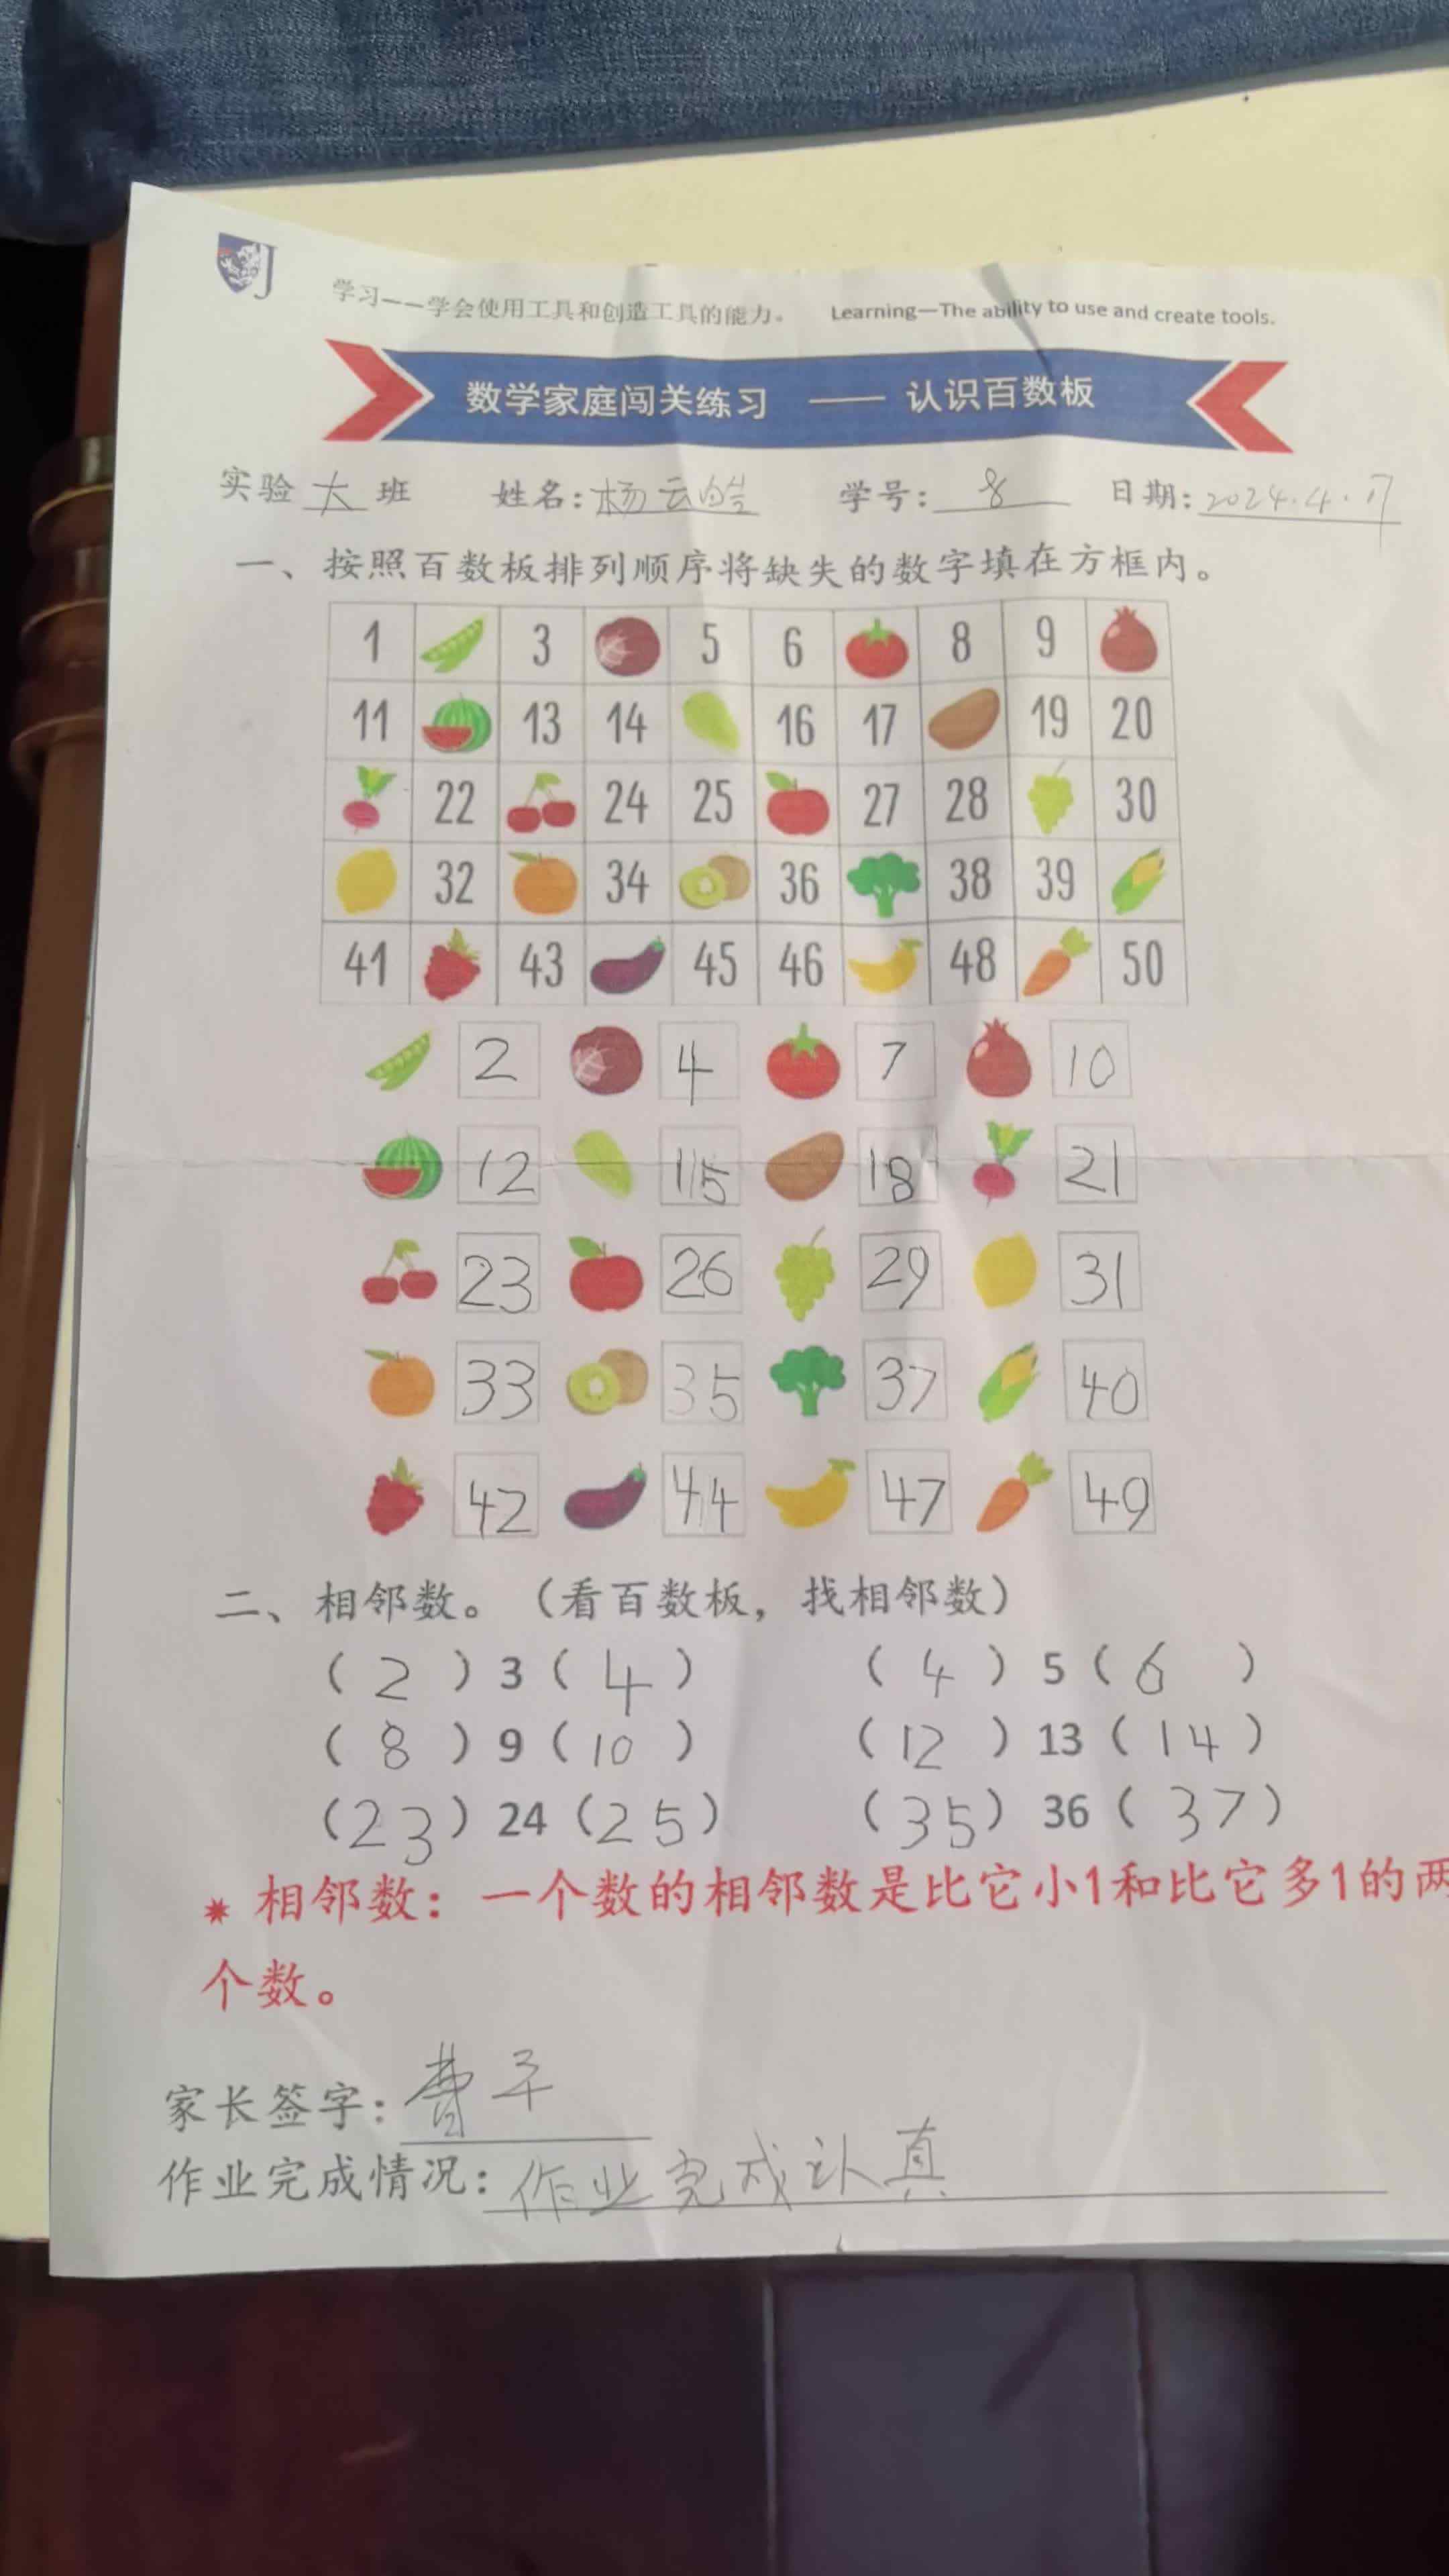 学习——学会使用工具和创造工具的能力。 Learning—The ability to use and create tools.
数学家庭闯关练习 —— 认识百数板
实验 大 班 姓名：杨云皓 学号：8 日期：2024.4.17
一、按照百数板排列顺序将缺失的数字填在方框内。
1 3 5 6 8 9
11 13 14 16 17 19 20
22 24 25 27 28 30
32 34 36 38 39
41 43 45 46 48 50
2 4 7 10
12 15 18 21
23 26 29 31
33 35 37 40
42 44 47 49
二、相邻数。（看百数板，找相邻数）
（2）3（4） （4）5（6）
（8）9（10） （12）13（14）
（23）24（25） （35）36（37）
* 相邻数：一个数的相邻数是比它小1和比它多1的两
个数。
家长签字：
作业完成情况：作业完成认真